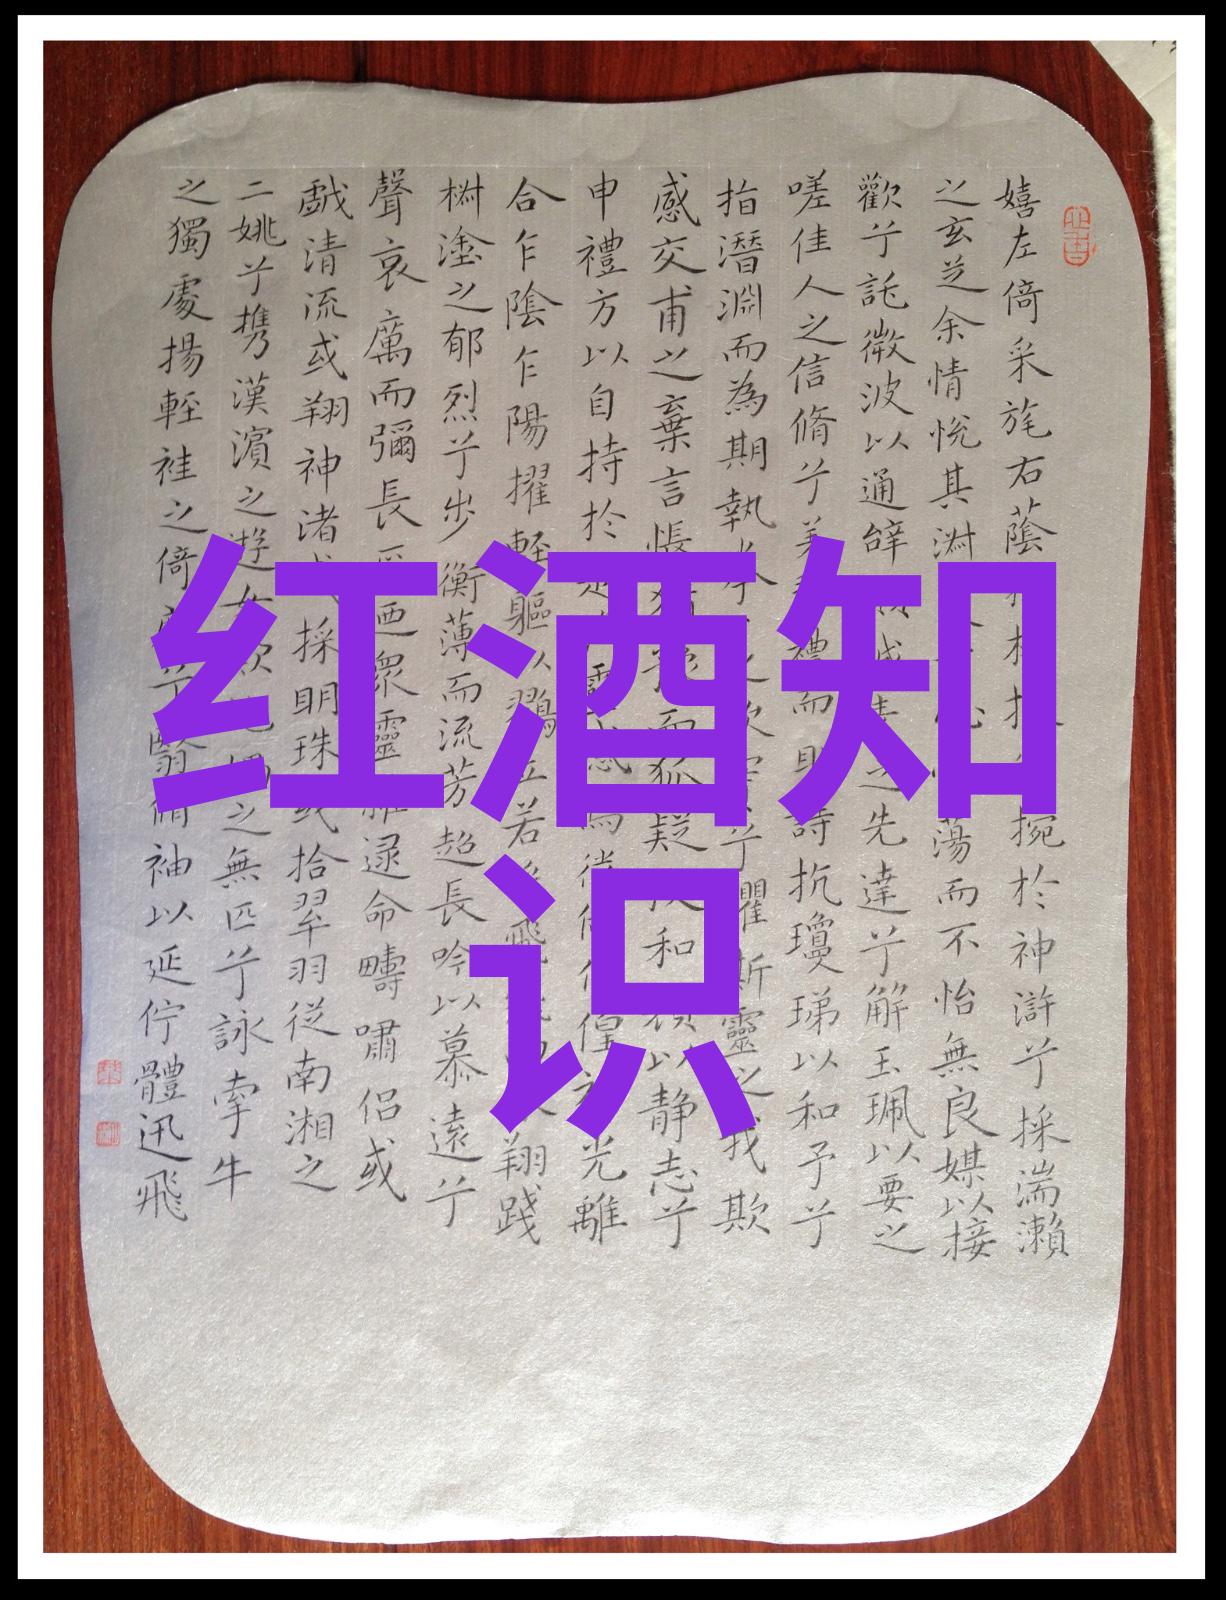 红酒知
识
嬉左倚采旄右蔭捥於神滸兮採湍瀨
之玄芝余情悅其淑蕩而不怡無良媒以接
歡兮託微波以通辭之先達兮解玉珮以要之
嗟佳人之信脩兮禮而詩抗瓊珶以和予兮
指潛淵而為期執之兮懼斯靈之我欺
感交甫之棄言悵而狐疑和以静志兮
申禮方以自持於靈感焉徨光離
合乍陰乍陽擢輕軀以鶴立若飛翔踐
椒塗之郁烈兮步衡薄而流芳超長吟以慕遠兮
聲哀厲而彌長迺衆靈雜遝命疇嘯侣或
戲清流或翔神渚採明珠或拾翠羽從南湘之
二姚兮携漢濱之遊女之無匹兮詠牽牛
之獨處揚輕袿之倚靡兮翳脩袖以延佇體迅飛